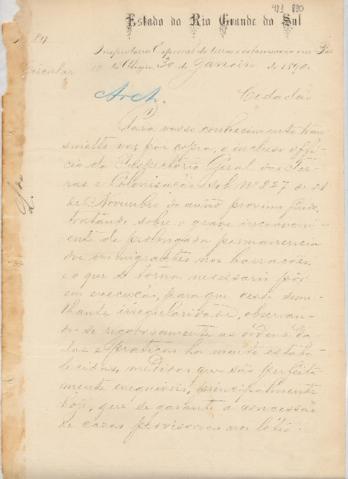 Estado do Rio Grande do Sul
Inspectoria Especial de terras e colonisação em Por
to Alegre, 30 de Janeiro de 1890.
Circular
Cidadão
Para vosso conhecimento trans
mitto vos por copia, o incluso offi
cio da Inspectoria Geral das Ter
ras e Colonisação sob Nº 827 de 21
de Novembro do anno proximo findo,
tratando sobre o grave inconveni
ente da prolongada permanencia
dos immigrantes nos barracões,
e o que se torna necessario pôr
em execução, para que cesse seme
lhante irregularidade, observan
do-se rigorosamente as ordens da
das e praticas ha muito estabe
lecidas, medidas que são perfeita
mente exequiveis, principalmente
hoje, que se garante a concessão
de cazas provisorias nos lotes